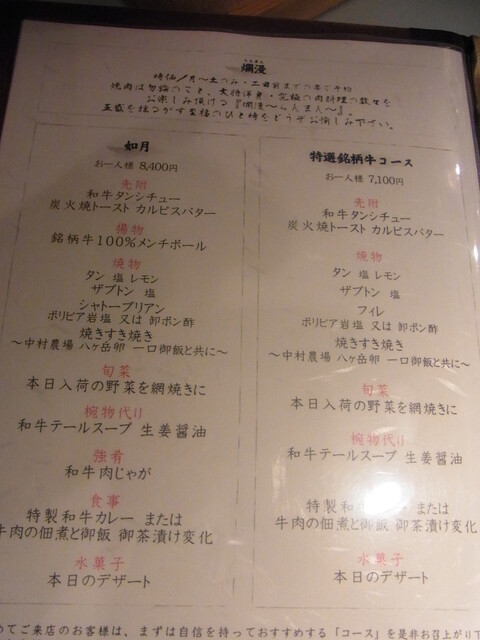 爛漫
時価／月〜土のみ・二日前までの要ご予約
焼肉は勿論のこと、大将渾身・究極の肉料理の数々を
お楽しみ頂ける『爛漫〜らんまん〜』。
五感を揺るがす至福のひと時をどうぞお愉しみ下さい。
如月
お一人様 8,400円
先附
和牛タンシチュー
炭火焼トースト カルピスバター
揚物
銘柄牛100%メンチボール
焼物
タン 塩 レモン
ザブトン 塩
シャトーブリアン
ボリビア岩塩 又は 卸ポン酢
焼きすき焼き
〜中村農場 八ヶ岳卵 一口御飯と共に〜
旬菜
本日入荷の野菜を網焼きに
椀物代り
和牛テールスープ 生姜醤油
強肴
和牛肉じゃが
食事
特製和牛カレー または
牛肉の佃煮と御飯 御茶漬け変化
水菓子
本日のデザート
特選銘柄牛コース
お一人様 7,100円
先附
和牛タンシチュー
炭火焼トースト カルピスバター
焼物
タン 塩 レモン
ザブトン 塩
フィレ
ボリビア岩塩 又は 卸ポン酢
焼きすき焼き
〜中村農場 八ヶ岳卵 一口御飯と共に〜
旬菜
本日入荷の野菜を網焼きに
椀物代り
和牛テールスープ 生姜醤油
特製和牛カレー または
牛肉の佃煮と御飯 御茶漬け変化
水菓子
本日のデザート
めてご来店のお客様は、まずは自信を持っておすすめする「コース」を是非お召上がり下